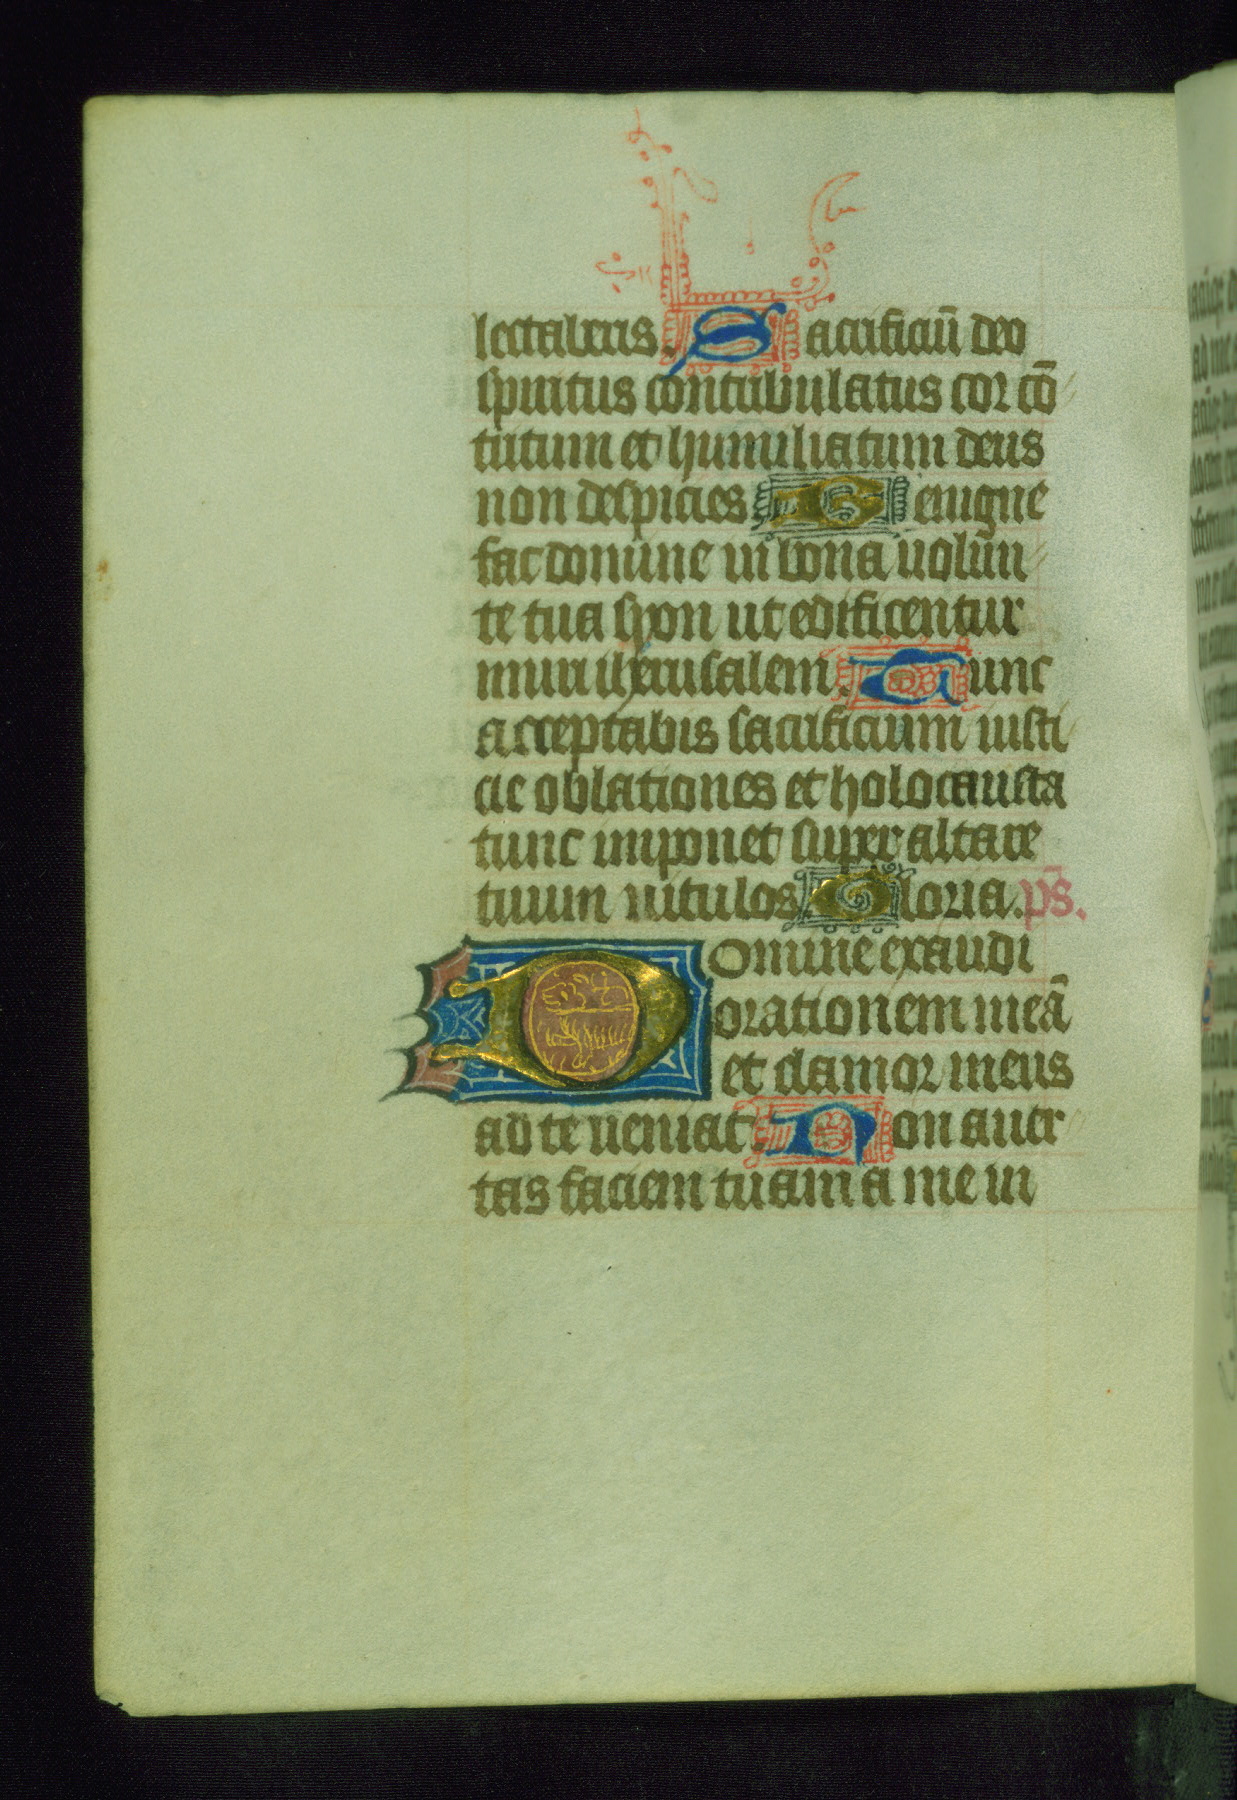 lectaberis. Sacrificiū deo
spiritus contribulatus cor cō
tritum et humiliatum deus
non despicies Benigne
fac domine in bona uolun
te tua syon ut edificentur
muri iherusalem. Tunc
acceptabis sacrificium iusti
cie oblationes et holocausta
tunc imponet super altare
tuum uitulos. Gloria. p̄s.
Domine exaudi
orationem meā
et clamor meus
ad te ueniat. Non auer
tas faciem tuam a me in